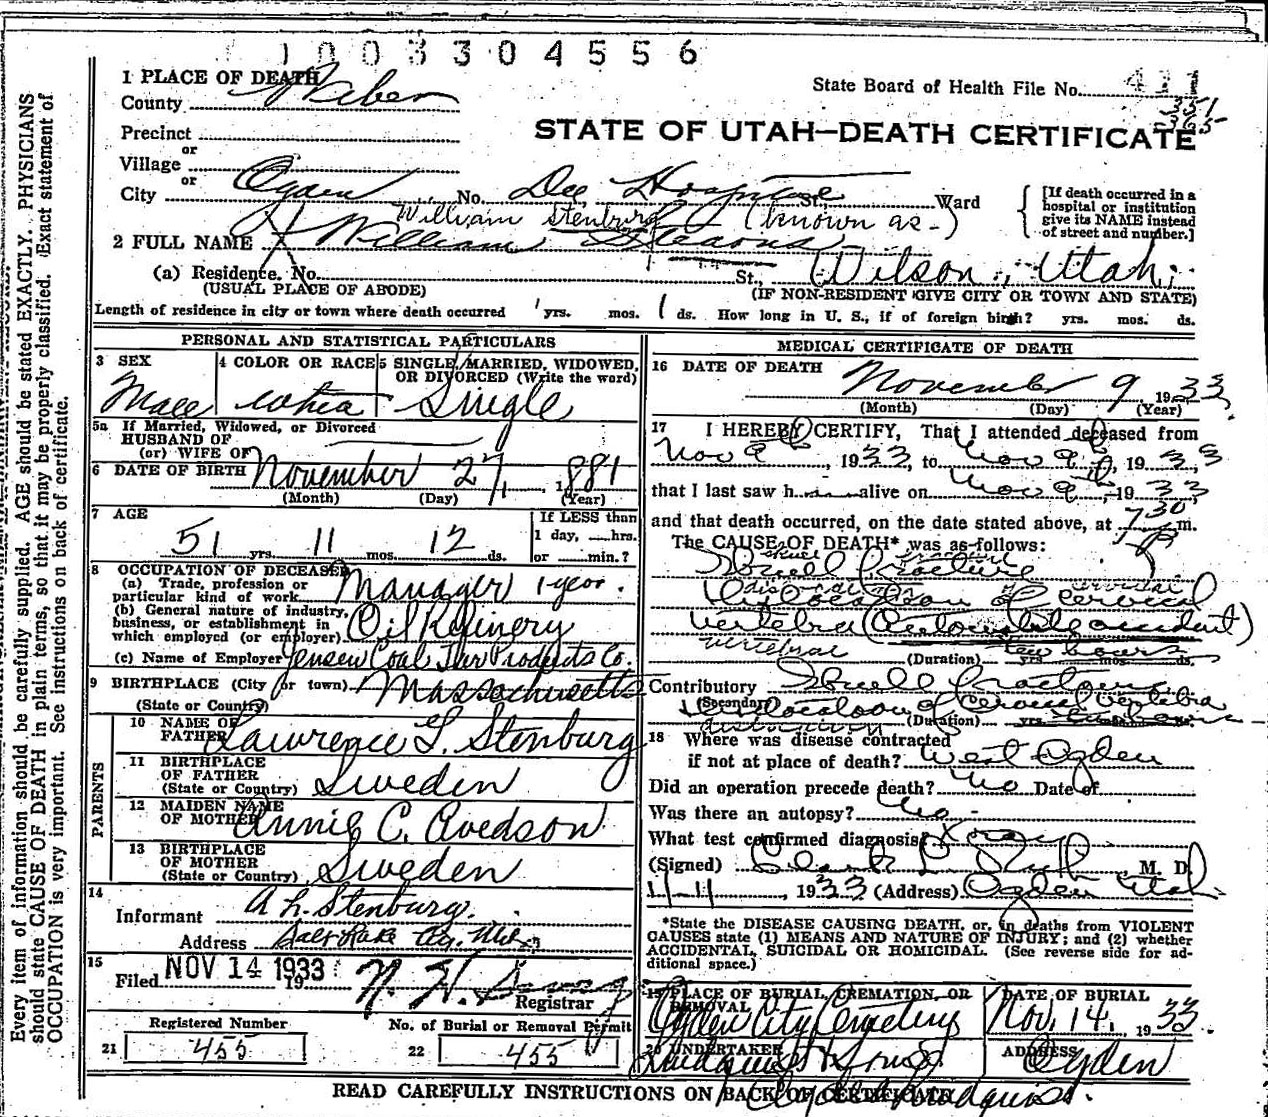 1003304556
1 PLACE OF DEATH
County Weber
State Board of Health File No. 411
351
365
Precinct
or
Village
STATE OF UTAH—DEATH CERTIFICATE
or
City Ogden No. Dee Hospital St., Ward
[If death occurred in a
hospital or institution
give its NAME instead
of street and number.]
William Stenburg (known as-)
2 FULL NAME William Stearns
(a) Residence. No. St., Wilson, Utah.
(USUAL PLACE OF ABODE) (IF NON-RESIDENT GIVE CITY OR TOWN AND STATE)
Length of residence in city or town where death occurred yrs. mos. 1 ds. How long in U. S., if of foreign birth? yrs. mos. ds.
PERSONAL AND STATISTICAL PARTICULARS
3 SEX
Male
4 COLOR OR RACE
white
5 SINGLE, MARRIED, WIDOWED,
OR DIVORCED (Write the word)
Single
5a If Married, Widowed, or Divorced
HUSBAND OF
(or) WIFE OF
6 DATE OF BIRTH November 27, 1881
(Month) (Day) (Year)
7 AGE
51 yrs. 11 mos. 12 ds.
If LESS than
1 day, hrs.
or min.?
8 OCCUPATION OF DECEASED
(a) Trade, profession or
particular kind of work Manager 1 year.
(b) General nature of industry,
business, or establishment in
which employed (or employer) Oil Refinery
(c) Name of Employer Jensen Coal Tar Products Co.
9 BIRTHPLACE (City or town) Massachusetts
(State or Country)
PARENTS
10 NAME OF
FATHER Lawrence L. Stenburg
11 BIRTHPLACE
OF FATHER
(State or Country) Sweden
12 MAIDEN NAME
OF MOTHER Annie C. Avedson
13 BIRTHPLACE
OF MOTHER
(State or Country) Sweden
14
Informant A. L. Stenburg.
Address Salt Lake City,
15
Filed NOV 14 1933 19
Registrar
Registered Number
21 455
No. of Burial or Removal Permit
22 455
MEDICAL CERTIFICATE OF DEATH
16 DATE OF DEATH
November 9 1933
(Month) (Day) (Year)
17 I HEREBY CERTIFY, That I attended deceased from
Nov 9, 1933, to Nov 9, 1933
that I last saw h alive on Nov 9, 1933
and that death occurred, on the date stated above, at 7 30 P m.
The CAUSE OF DEATH* was as follows:
skull fracture
Skull fracture
dislocation cervical
Dislocation of cervical
vertebra (Automobile accident)
vertebrae (Duration) yrs. few hours mos. ds.
Contributory Skull fracture
(Secondary) Dislocation of Cervical Vertebra
dislocation (Duration) yrs. few hours mos. ds.
18 Where was disease contracted
if not at place of death? West Ogden
Did an operation precede death? No Date of
Was there an autopsy? No.
What test confirmed diagnosis? X ray
(Signed) Clark L. M. D.
11-11 1933 (Address) Ogden Utah.
*State the DISEASE CAUSING DEATH, or, in deaths from VIOLENT
CAUSES state (1) MEANS AND NATURE OF INJURY; and (2) whether
ACCIDENTAL, SUICIDAL OR HOMICIDAL. (See reverse side for ad-
ditional space.)
19 PLACE OF BURIAL, CREMATION, OR
REMOVAL
Ogden City Cemetery
DATE OF BURIAL
Nov. 14. 1933.
20 UNDERTAKER
Lindquist & Sons
ADDRESS
Ogden
Lindquist.
READ CAREFULLY INSTRUCTIONS ON BACK OF CERTIFICATE
Every item of information should be carefully supplied. AGE should be stated EXACTLY. PHYSICIANS
should state CAUSE OF DEATH in plain terms, so that it may be properly classified. Exact statement of
OCCUPATION is very important. See instructions on back of certificate.